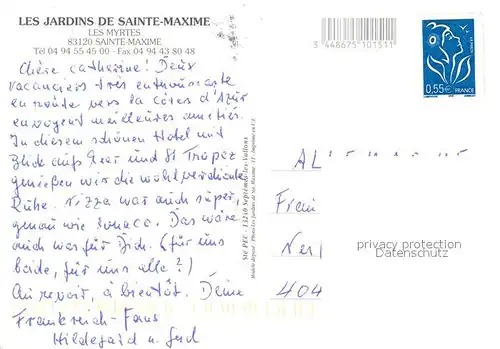 LES JARDINS DE SAINTE-MAXIME
LES MYRTES
83120 SAINTE-MAXIME
Tél 04 94 55 45 00 - Fax 04 94 43 80 48
Chère Catherine! Deux
vacanciers très enthousiaste
en route vers la côtes d'Azur
envoyent meilleures amitiés.
In diesem schönen Hotel mit
Blick aufs Meer und St Tropez
genießen wir die wohlverdiente
Ruhe. Nizza war auch super,
genau wie Monaco. Das wäre
auch was für Dich. (für uns
beide, für uns alle?)
Au revoir, à bientôt. Deine
Frankreich-Fans
Hildegard u. Gerd
3 448675 101511
0,55€ FRANCE
Sté PEC - 13240 Septèmes-les-Vallons
AL
Frau
Ner
404
privacy protection
Datenschutz